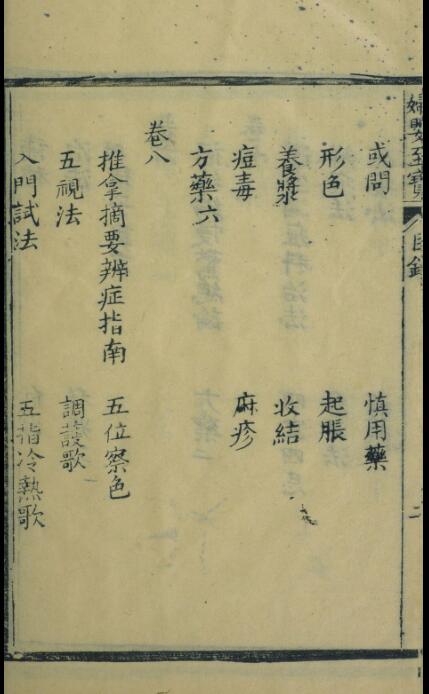 婦嬰至寶 目錄 二
或問 慎用藥
形色 起脹
養漿 收結
痘毒 麻疹
方藥六
卷八
推拿摘要辨症指南 五位察色
五視法 調護歌
入門試法 五指冷熱歌